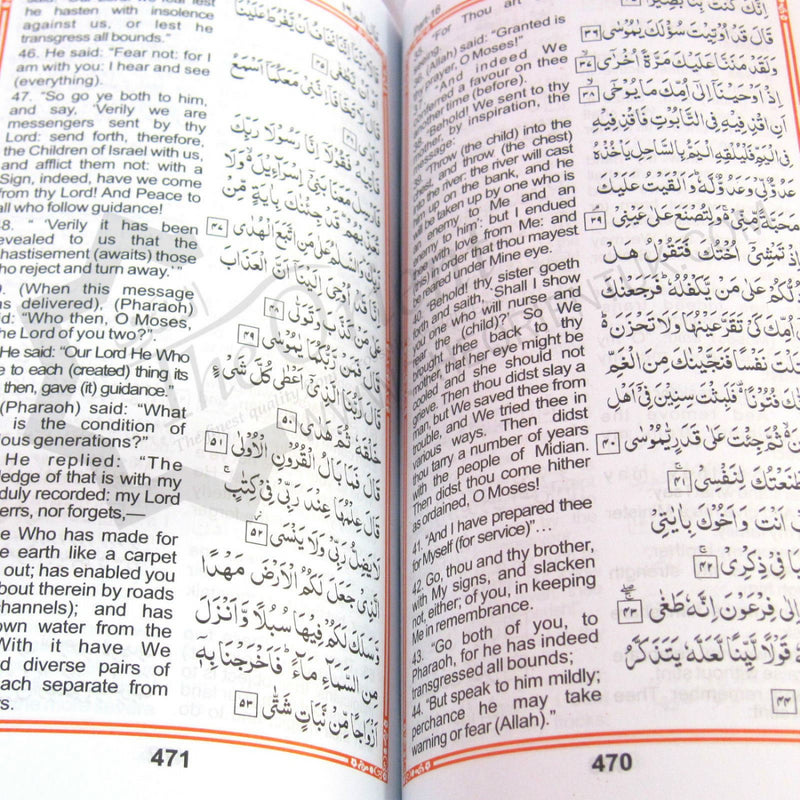 Part-16
35. "For Thou art
seeing."
36. (Allah) said: "Granted is
thy prayer, O Moses!"
37. "And indeed We
conferred a favour on thee
another time (before).
38. "Behold! We sent to thy
mother, by inspiration, the
message:
39. "'Throw (the child) into the
chest, and throw (the chest)
into the river: the river will cast
him up on the bank, and he
will be taken up by one who is
an enemy to Me and an
enemy to him': but I endued
thee with love from Me: and
(this) in order that thou mayest
be reared under Mine eye.
40. "Behold! thy sister goeth
forth and saith, 'Shall I show
you one who will nurse and
rear the (child)?' So We
brought thee back to thy
mother, that her eye might be
cooled and she should not
grieve. Then thou didst slay a
man, but We saved thee from
trouble, and We tried thee in
various ways. Then didst
thou tarry a number of years
with the people of Midian.
Then didst thou come hither
as ordained, O Moses!
41. "And I have prepared thee
for Myself (for service)" . . .
42. "Go, thou and thy brother,
with My signs, and slacken
not, either; of you, in keeping
Me in remembrance.
43. "Go both of you, to
Pharaoh, for he has indeed
transgressed all bounds;
44. "But speak to him mildly;
perchance he may take
warning or fear (Allah)."
اِنَّكَ كُنْتَ بِنَا بَصِيْرًا
قَالَ قَدْ اُوْتِيْتَ سُؤْلَكَ يٰمُوْسٰى ٣٦
وَلَقَدْ مَنَنَّا عَلَيْكَ مَرَّةً اُخْرٰٓى ٣٧
اِذْ اَوْحَيْنَآ اِلٰٓى اُمِّكَ مَا يُوْحٰٓى ٣٨
اَنِ اقْذِفِيْهِ فِى التَّابُوْتِ فَاقْذِفِيْهِ
فِى الْيَمِّ فَلْيُلْقِهِ الْيَمُّ بِالسَّاحِلِ يَاْخُذْهُ
عَدُوٌّ لِّيْ وَعَدُوٌّ لَّهٗ وَاَلْقَيْتُ عَلَيْكَ
مَحَبَّةً مِّنِّيْ وَلِتُصْنَعَ عَلٰى عَيْنِيْ ٣٩
اِذْ تَمْشِيْٓ اُخْتُكَ فَتَقُوْلُ هَلْ
اَدُلُّكُمْ عَلٰى مَنْ يَّكْفُلُهٗ فَرَجَعْنٰكَ
اِلٰٓى اُمِّكَ كَيْ تَقَرَّ عَيْنُهَا وَلَا تَحْزَنَ
وَقَتَلْتَ نَفْسًا فَنَجَّيْنٰكَ مِنَ الْغَمِّ
وَفَتَنّٰكَ فُتُوْنًا فَلَبِثْتَ سِنِيْنَ فِيْٓ اَهْلِ
مَدْيَنَ ثُمَّ جِئْتَ عَلٰى قَدَرٍ يّٰمُوْسٰى ٤٠
وَاصْطَنَعْتُكَ لِنَفْسِيْ ٤١
اِذْهَبْ اَنْتَ وَاَخُوْكَ بِاٰيٰتِيْ
وَلَا تَنِيَا فِيْ ذِكْرِيْ ٤٢
اِذْهَبَآ اِلٰى فِرْعَوْنَ اِنَّهٗ طَغٰى ٤٣
فَقُوْلَا لَهٗ قَوْلًا لَّيِّنًا لَّعَلَّهٗ يَتَذَكَّرُ
٤٤
470
he hasten with insolence
against us, or lest he
transgress all bounds."
46. He said: "Fear not: for I
am with you: I hear and see
(everything).
47. "So go ye both to him,
and say, 'Verily we are
messengers sent by thy
Lord: send forth, therefore,
the Children of Israel with us,
and afflict them not: with a
Sign, indeed, have we come
from thy Lord! And Peace to
all who follow guidance!
48. " 'Verily it has been
revealed to us that the
chastisement (awaits) those
who reject and turn away.' "
(When this message
was delivered), (Pharaoh)
said: "Who then, O Moses,
the Lord of you two?"
He said: "Our Lord He Who
to each (created) thing its
then, gave (it) guidance."
(Pharaoh) said: "What
is the condition of
generations?"
He replied: "The
knowledge of that is with my
duly recorded: my Lord
errs, nor forgets,—
Who has made for
earth like a carpet
out; has enabled you
about therein by roads
(channels); and has
down water from the
With it have We
diverse pairs of
each separate from
قَالَا رَبَّنَآ اِنَّنَا نَخَافُ اَنْ يَّفْرُطَ عَلَيْنَآ
اَوْ اَنْ يَّطْغٰى ٤٥
قَالَ لَا تَخَافَآ اِنَّنِيْ مَعَكُمَآ اَسْمَعُ
وَاَرٰى ٤٦
فَاْتِيٰهُ فَقُوْلَآ اِنَّا رَسُوْلَا رَبِّكَ
فَاَرْسِلْ مَعَنَا بَنِيْٓ اِسْرَآءِيْلَ وَلَا
تُعَذِّبْهُمْ قَدْ جِئْنٰكَ بِاٰيَةٍ مِّنْ
رَّبِّكَ وَالسَّلٰمُ عَلٰى مَنِ اتَّبَعَ الْهُدٰى ٤٧
اِنَّا قَدْ اُوْحِيَ اِلَيْنَآ اَنَّ الْعَذَابَ
عَلٰى مَنْ كَذَّبَ وَتَوَلّٰى ٤٨
قَالَ فَمَنْ رَّبُّكُمَا يٰمُوْسٰى ٤٩
قَالَ رَبُّنَا الَّذِيْٓ اَعْطٰى كُلَّ شَيْءٍ
خَلْقَهٗ ثُمَّ هَدٰى ٥٠
قَالَ فَمَا بَالُ الْقُرُوْنِ الْاُوْلٰى ٥١
قَالَ عِلْمُهَا عِنْدَ رَبِّيْ فِيْ كِتٰبٍ
لَا يَضِلُّ رَبِّيْ وَلَا يَنْسَى ٥٢
الَّذِيْ جَعَلَ لَكُمُ الْاَرْضَ مَهْدًا
وَّسَلَكَ لَكُمْ فِيْهَا سُبُلًا وَّاَنْزَلَ
مِنَ السَّمَآءِ مَآءً فَاَخْرَجْنَا بِهٖٓ
اَزْوَاجًا مِّنْ نَّبَاتٍ شَتّٰى ٥٣
471
The finest quality